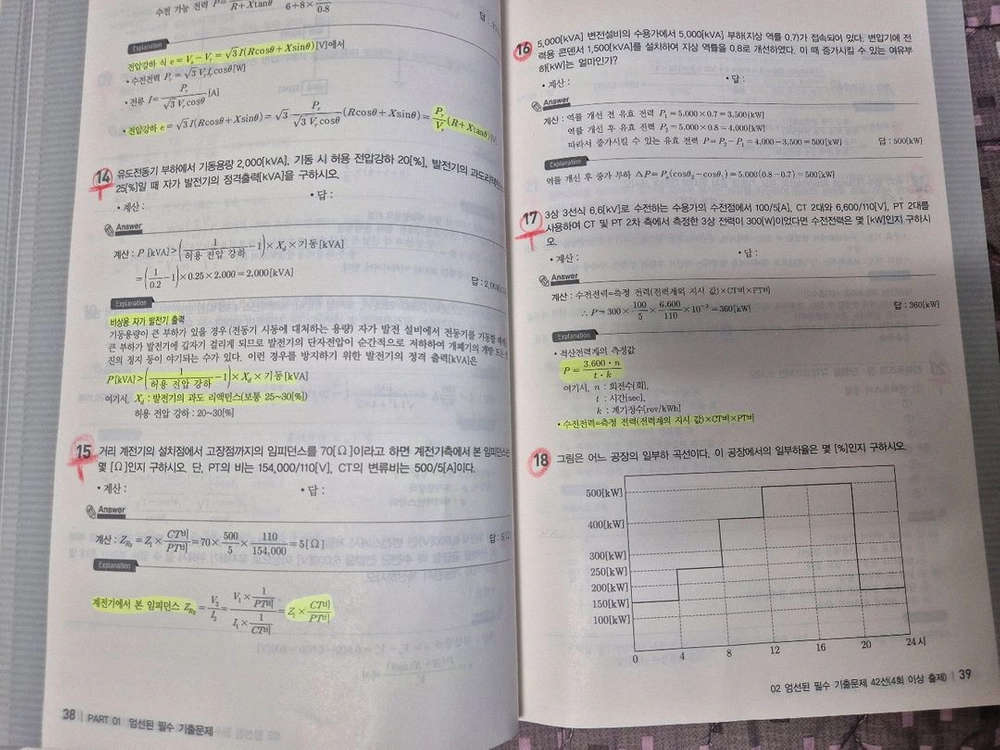 수전 가능 전력 P= R+Xtanθ 6+8× 0.8
Explanation
전압강하 식 e = Vs − Vr = √3 I(Rcosθ+Xsinθ)[V]에서
• 수전전력 Pr = √3 VrIrcosθ[W]
• 전류 I= Pr / √3 Vrcosθ [A]
• 전압강하 e = √3 I(Rcosθ+Xsinθ) = √3 Pr / √3 Vrcosθ (Rcosθ+Xsinθ) = Pr / Vr (R+Xtanθ)
14 유도전동기 부하에서 기동용량 2,000[kVA], 기동 시 허용 전압강하 20[%], 발전기의 과도리액턴스
25[%]일 때 자가 발전기의 정격출력[kVA]을 구하시오.
• 계산 : • 답 :
Answer
계산 : P [kVA]>(1 / 허용 전압 강하 −1)×Xd×기동[kVA]
=(1/0.2 −1)×0.25×2,000=2,000[kVA] 답 : 2,000
Explanation
비상용 자가 발전기 출력
기동용량이 큰 부하가 있을 경우(전동기 시동에 대처하는 용량) 자가 발전 설비에서 전동기를 기동할 때
큰 부하가 발전기에 갑자기 걸리게 되므로 발전기의 단자전압이 순간적으로 저하하여 개폐기의 개방 또는
진의 정지 등이 야기되는 수가 있다. 이런 경우를 방지하기 위한 발전기의 정격 출력[kVA]은
P[kVA]>(1 / 허용 전압 강하 −1)×Xd×기동[kVA]
여기서, Xd : 발전기의 과도 리액턴스(보통 25~30[%])
허용 전압 강하 : 20~30[%]
15 거리 계전기의 설치점에서 고장점까지의 임피던스를 70[Ω]이라고 하면 계전기측에서 본 임피던스는
몇 [Ω]인지 구하시오. 단, PT의 비는 154,000/110[V], CT의 변류비는 500/5[A]이다.
• 계산 : • 답 :
Answer
계산 : ZRy = Z1× CT비/PT비 = 70× 500/5 × 110/154,000 = 5[Ω] 답 : 5
Explanation
계전기에서 본 임피던스 ZRy = V2/I2 = (V1× 1/PT비) / (I1× 1/CT비) = Z1× CT비/PT비
38 | PART 01 엄선된 필수 기출문제
16 5,000[kVA] 변전설비의 수용가에서 5,000[kVA] 부하(지상 역률 0.7)가 접속되어 있다. 변압기에 전
력용 콘덴서 1,500[kVA]를 설치하여 지상 역률을 0.8로 개선하였다. 이 때 증가시킬 수 있는 여유부
하[kW]는 얼마인가?
• 계산 : • 답 :
Answer
계산 : 역률 개선 전 유효 전력 P1 = 5,000×0.7=3,500[kW]
역률 개선 후 유효 전력 P2 = 5,000×0.8=4,000[kW]
따라서 증가시킬 수 있는 유효 전력 P=P2−P1=4,000−3,500=500[kW] 답 : 500[kW]
Explanation
역률 개선 후 증가 부하 ΔP=Pa(cosθ2−cosθ1)=5,000(0.8−0.7)=500[kW]
17 3상 3선식 6.6[kV]로 수전하는 수용가의 수전점에서 100/5[A], CT 2대와 6,600/110[V], PT 2대를
사용하여 CT 및 PT 2차 측에서 측정한 3상 전력이 300[W]이었다면 수전전력은 몇 [kW]인지 구하시
오.
• 계산 : • 답 :
Answer
계산 : 수전전력=측정 전력(전력계의 지시 값)×CT비×PT비
∴ P=300× 100/5 × 6,600/110 ×10⁻³=360[kW] 답 : 360[kW]
Explanation
• 적산전력계의 측정값
P= 3,600·n / t·k
여기서, n : 회전수[회],
t : 시간[sec],
k : 계기정수[rev/kWh]
• 수전전력=측정 전력(전력계의 지시 값)×CT비×PT비
18 그림은 어느 공장의 일부하 곡선이다. 이 공장에서의 일부하율은 몇 [%]인지 구하시오.
500[kW]
400[kW]
300[kW]
250[kW]
200[kW]
150[kW]
100[kW]
0 4 8 12 16 20 24 시
02 엄선된 필수 기출문제 42선(4회 이상 출제) | 39